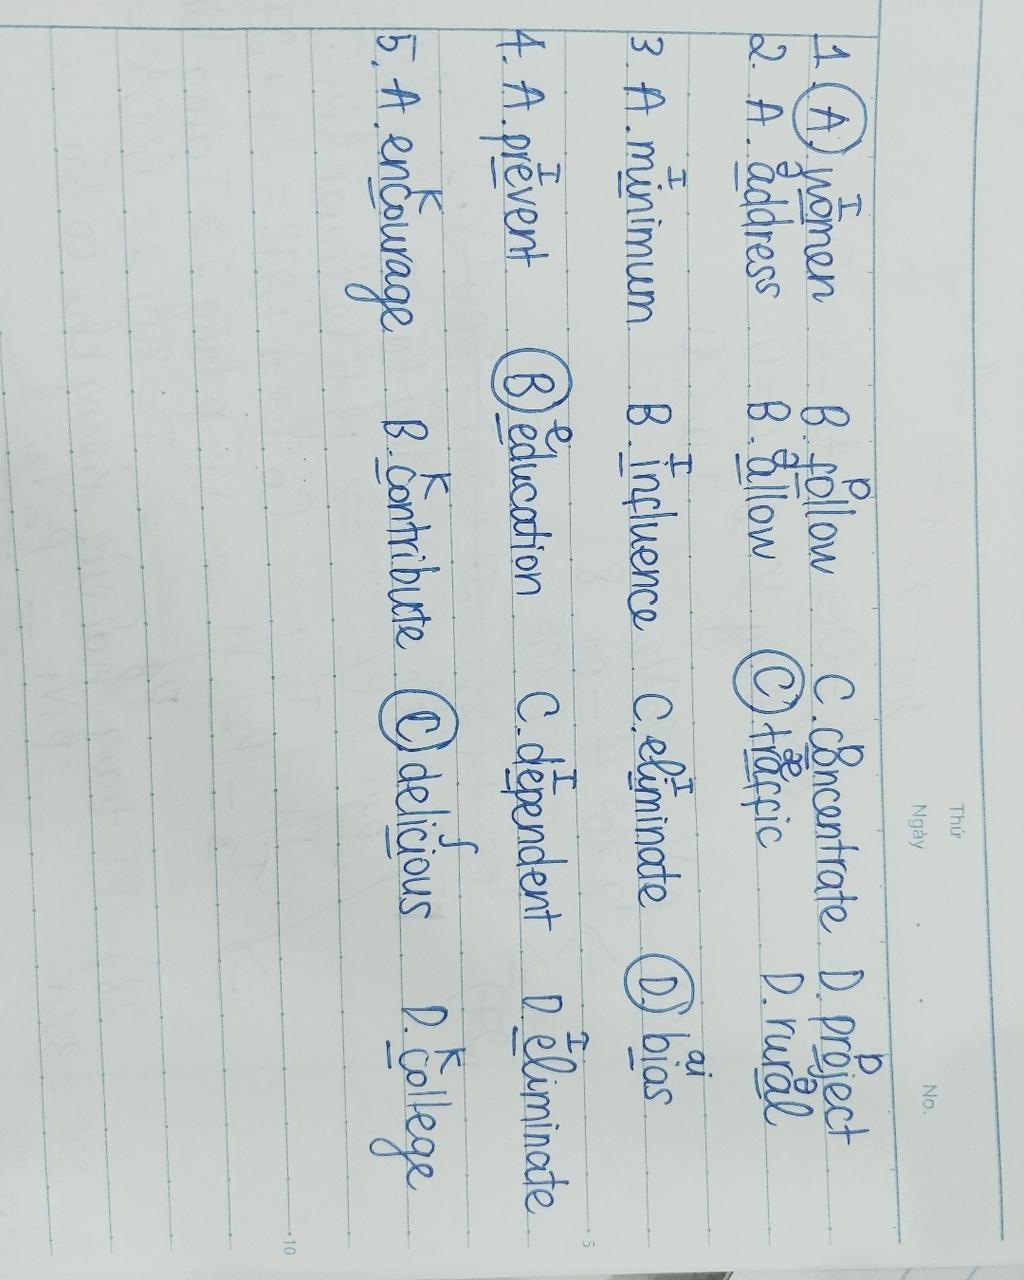 Thứ
Ngày No.
1. A. women B. follow C. concentrate D. project
I ɒ ɒ ɒ
2. A. address B. allow C. traffic D. rural
ə ə æ ə
3. A. minimum B. influence C. eliminate D. bias
I I I ai
4. A. prevent B. education C. dependent D. eliminate
I e I I
5. A. encourage B. contribute C. delicious D. college
K K ʃ K
5
10